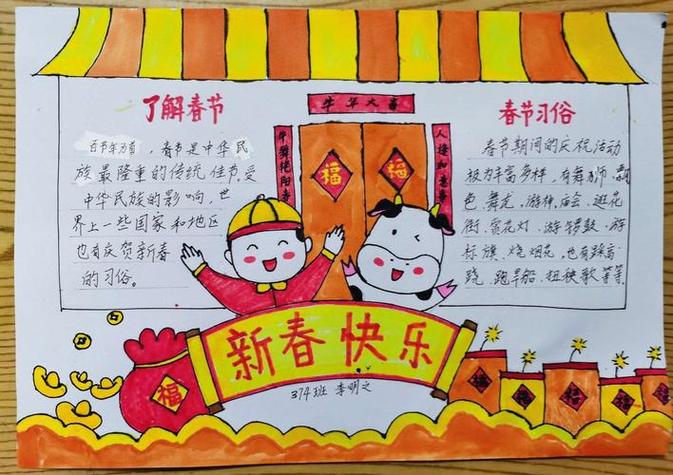 了解春节
百节年为首，春节是中华民
族最隆重的传统佳节受
中华民族的影响，世
界上一些国家和地区
也有庆贺新春
的习俗。
牛年大喜
牛舞艳阳春
人逢如意事
福
福
春节习俗
春节期间的庆祝活动
极为丰富多样，有舞狮、飘
色、舞龙、游神、庙会、逛花
街、赏花灯、游锣鼓、游
标旗、烧烟花、也有踩高
跷、跑旱船、扭秧歌等等
新春快乐
374班 李明之
福
福
福
福
福